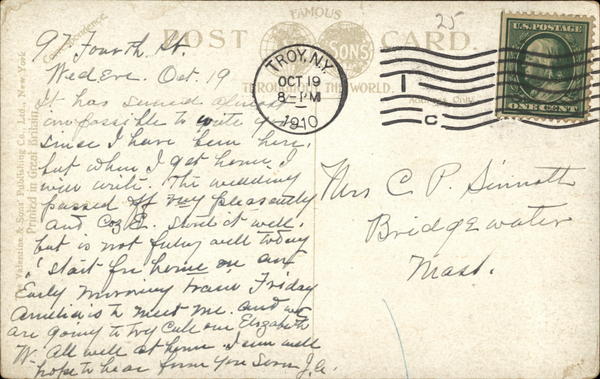 25
FAMOUS
POST CARD.
SONS
THROUGHOUT THE WORLD.
Correspondence.
Valentine & Sons' Publishing Co., Ltd., New York
Printed in Great Britain.
TROY, N.Y.
OCT 19
8-PM
1910
1
C
U.S. POSTAGE
ONE CENT
97 Fourth St.
Wed Eve. Oct. 19
It has seemed almost
impossible to write you
since I have been here.
but when I get home I
will write. The wedding
passed off very pleasantly
and Coz E. stood it well.
but is not feeling well today
I start for home on an
Early morning train Friday
Amelia is to meet me. and we
are going to try call on Elizabeth
W. All well at home. I am well
hope to hear from you soon J.A.
Mrs C. P. Sinnott
Bridgewater
Mass.